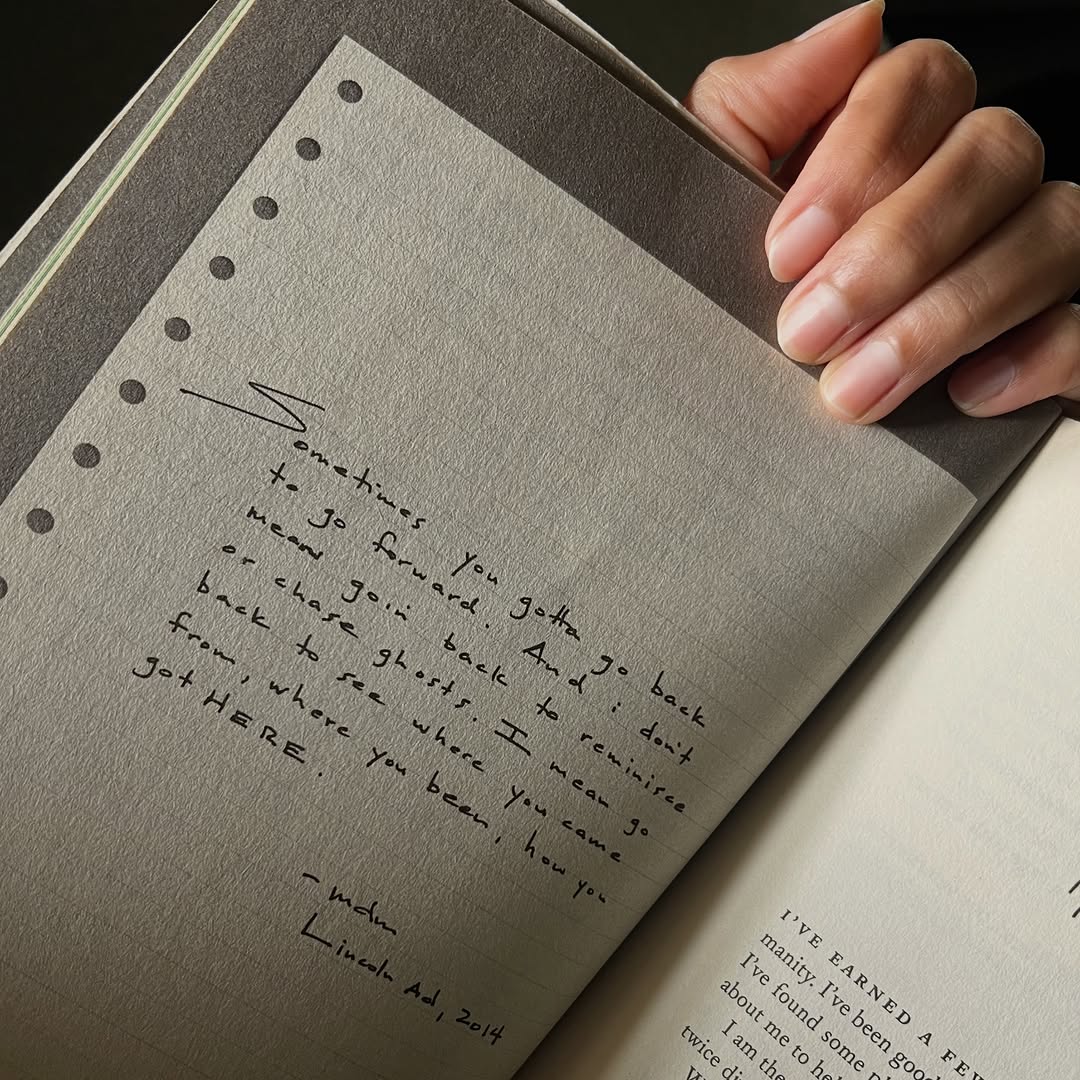 Sometimes you gotta go back
to go forward. And i don't
mean goin back to reminisce
or chase ghosts. I mean go
back to see where you came
from, where you been, how you
got HERE.
- mdm
Lincoln Ad, 2014
I'VE EARNED A FEW
manity. I've been good
I've found some
about me to hel
I am the
twice di